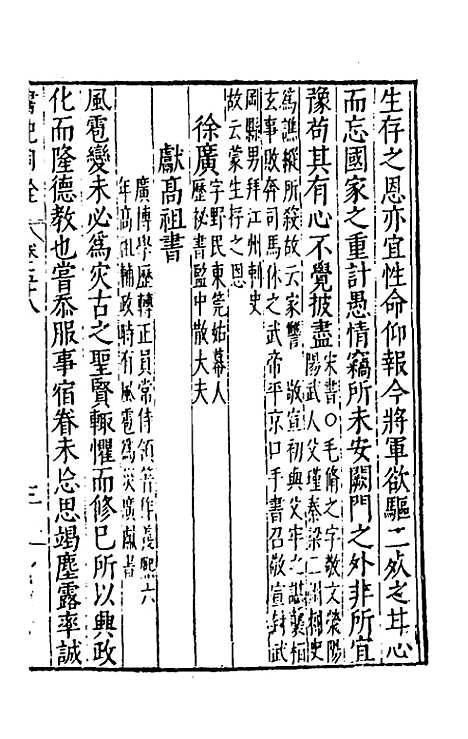 生存之恩亦宜性命仰報今將軍欲驅二死之甘心
而忘國家之重計愚情竊所未安闕門之外非所宜
豫苟其有心不覺披盡
宋書○毛脩之字敬文滎陽
陽武人父瑾秦梁二州刺史
為譙縱所殺故云家讐 敬宣初與父牢之謀襲桓
玄事敗奔司馬休之武帝平京口手書召敬宣封武
岡縣男拜江州刺史
故云蒙生存之恩
徐廣
字野民東莞姑幕人
歷秘書監中散大夫
獻高祖書
廣博學歷轉正員常侍領著作義熙六
年高祖輔政時有風雹為災廣獻書
風雹變未必為灾古之聖賢輒懼而修已所以興政
化而隆德教也嘗忝服事宿眷未忘思竭塵露率誠